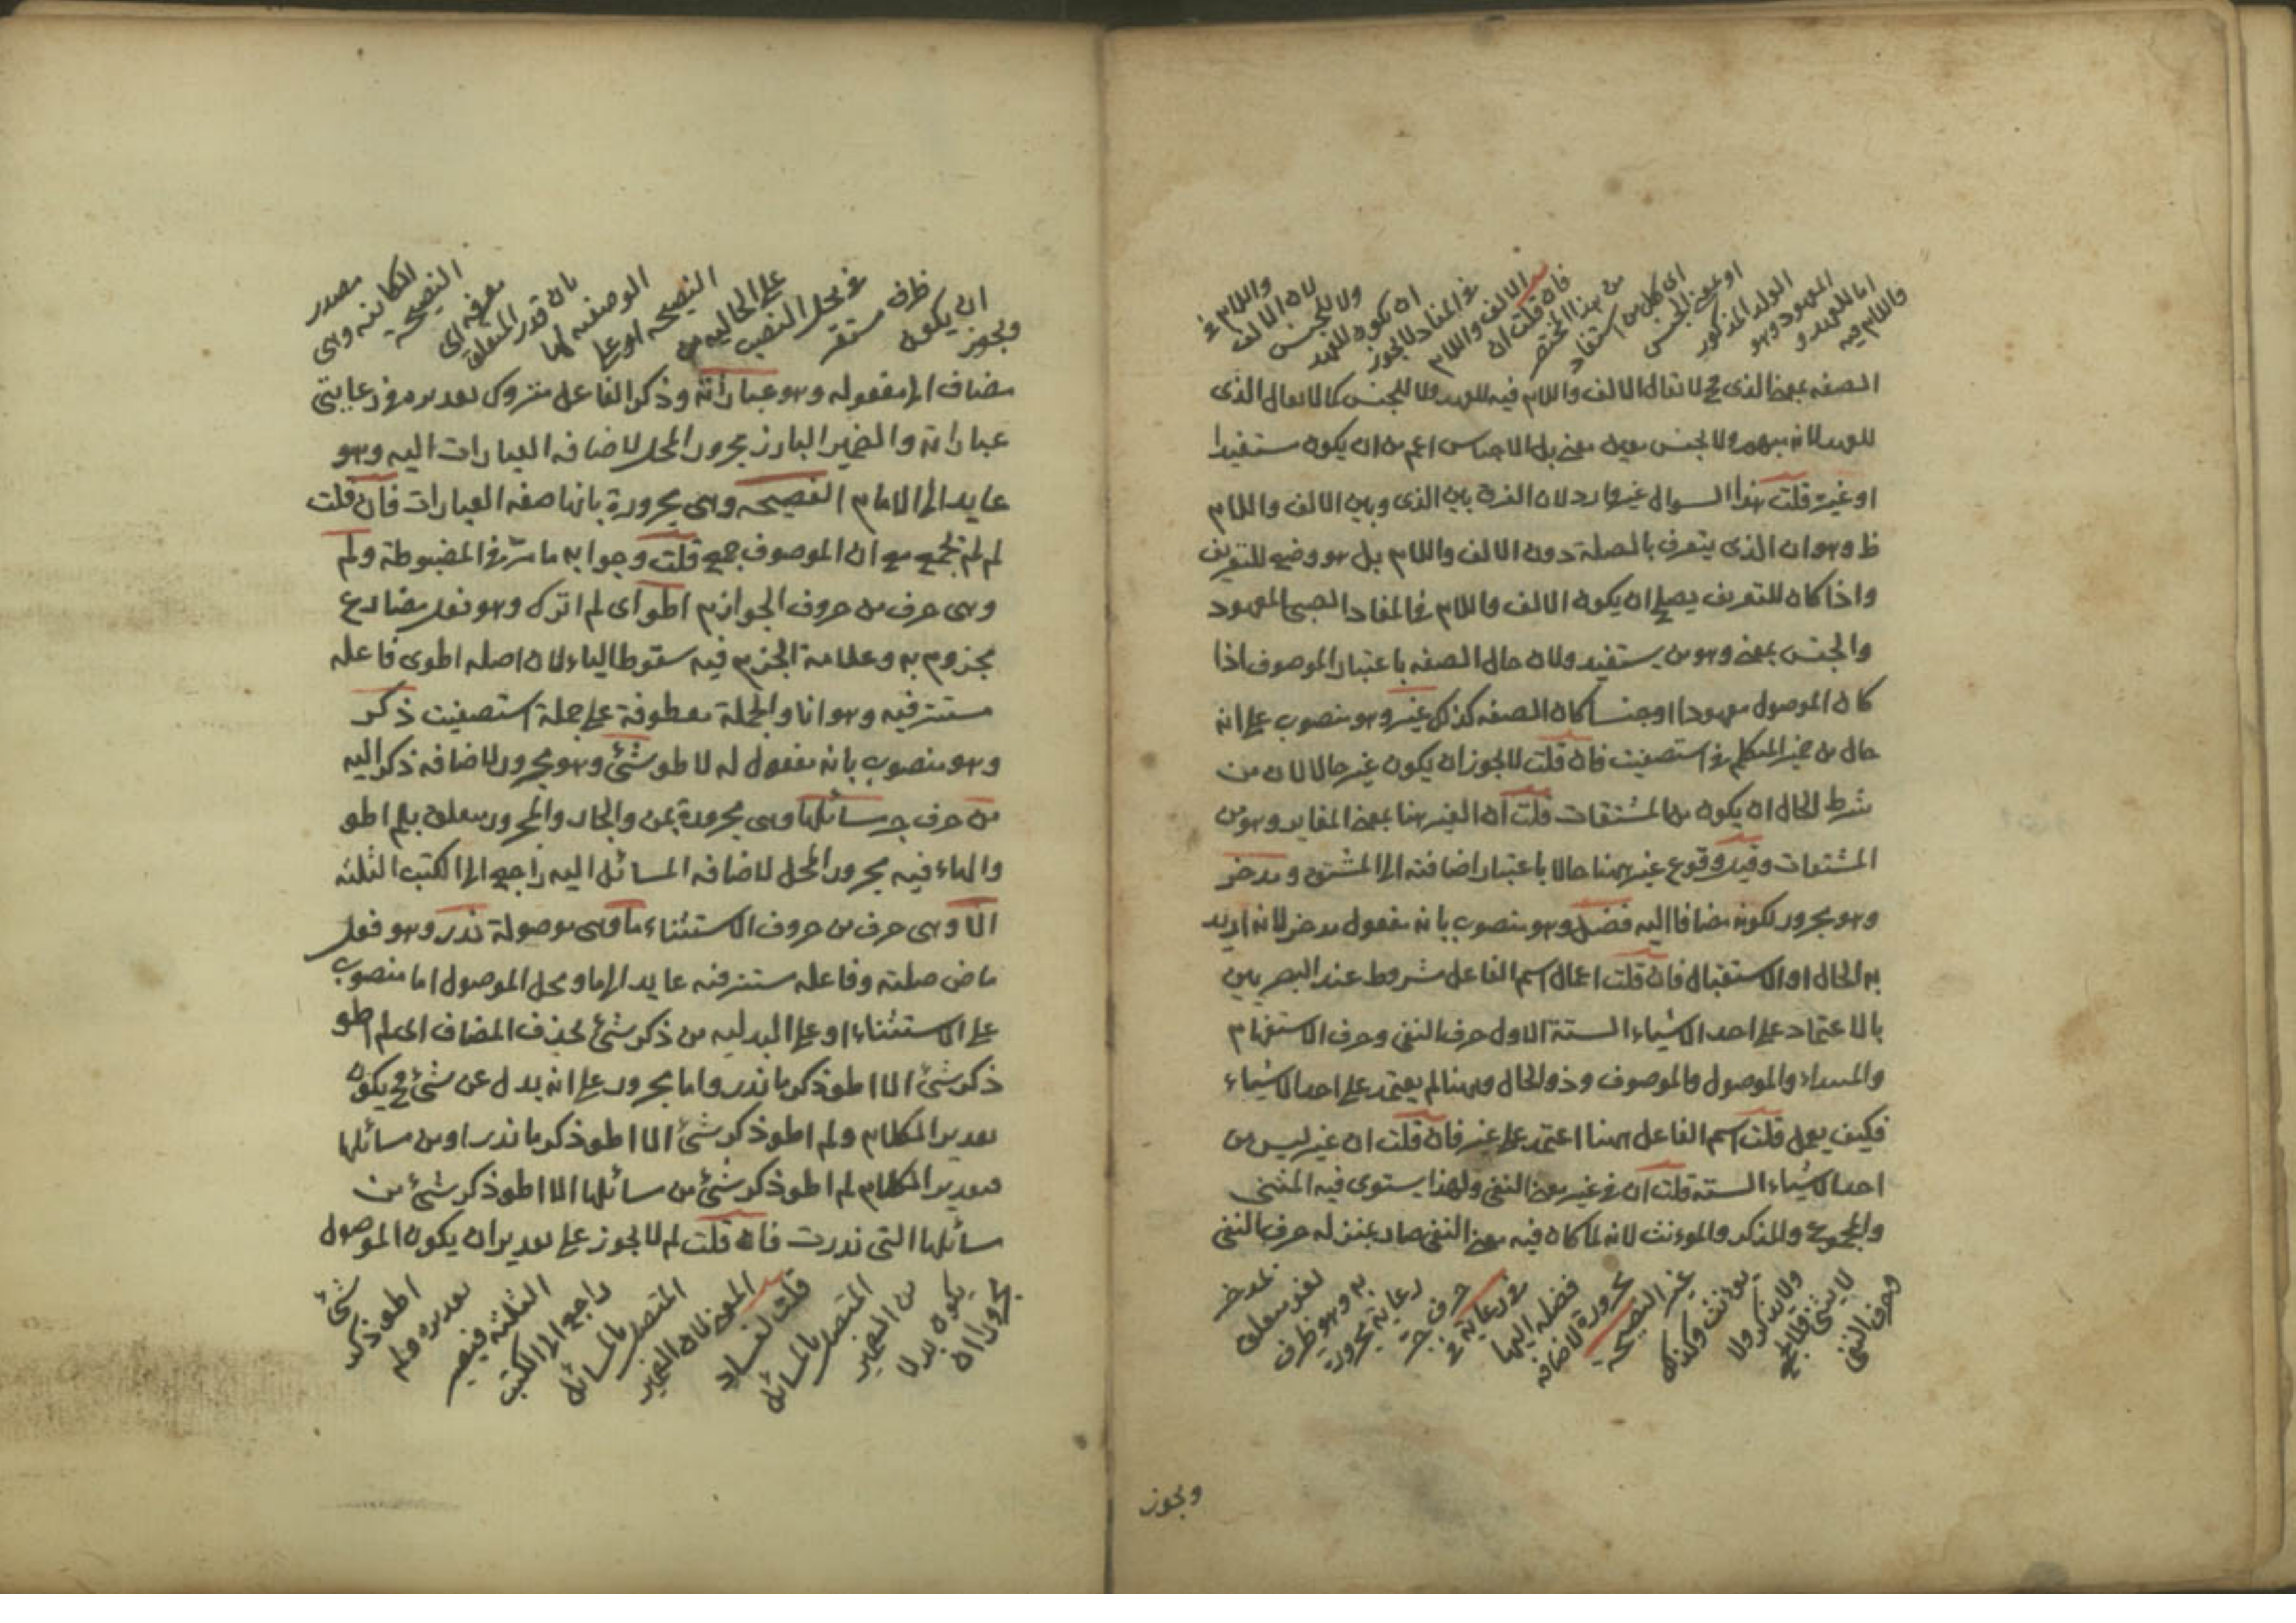 فاللام فيه
اما للعهد و
المعهود وهو
الولد المذكور
او بمعنى الجنس
اى كل من استفاد
من هذا المختصر
فان قلت ان
الالف واللام
فى المفاد لا يجوز
ان يكون للعهد
ولا للجنس
لان الالف
واللام فى
الصفة بمعنى الذى ح لا يقال الالف واللام فيه للعهد ولا للجنس كما لا يقال الذى
للعهد لانه مبهم ولا لجنس معين معنى بل الاجناس اعم من ان يكون مستفيدا
او غيره قلت هذا السوال غير وارد لان الفرق بين الذى وبين الالف واللام
ظ وهو ان الذى يتعرف بالصلة دون الالف واللام بل هو وضع للتعريف
واذا كان للتعريف يصلح ان يكون الالف واللام فى المفاد الصبى المعهود
والجنس بمعنى وهو من يستفيد ولان حال الصفة باعتبار الموصوف اذا
كان الموصول معهودا او جنسا كان الصفة كذلك غير وهو منصوب على انه
حال من ضمير المتكلم فى استصفيت فان قلت لا يجوز ان يكون غير حالا لان من
شرط الحال ان يكون من المشتقات قلت ان الغير هنا بمعنى المغاير وهو من
المشتقات وقيل وقوع غير ههنا حالا باعتبار اضافته الى المشتق و مدخر
وهو مجرور لكونه مضافا اليه فضل وهو منصوب بانه مفعول مدخر لانه اريد
به الحال او الاستقبال فان قلت اعمال اسم الفاعل مشروط عند البصريين
بالاعتماد على احد الاشياء الستة الاول حرف النفى وحرف الاستفهام
والمبتداء والموصول والموصوف وذو الحال وههنا لم يعتمد على احد الاشياء
فكيف يعمل قلت اسم الفاعل ههنا اعتمد على غير فان قلت ان غير ليس من
احد الاشياء الستة قلت ان فى غير معنى النفى ولهذا يستوى فيه المثنى
والمجموع والمذكر والمونث لانه لما كان فيه معنى النفى صار بمنزلة حرف النفى
وحرف النفى
لا يثنى ولا يجمع
ولا يذكر ولا
يونث وكذلك
غير النصيحة
مجرورة لاضافة
فضله اليها
فى رعاية فى
حرف جر
رعاية مجرورة
به وهو ظرف
لغو متعلق
بمدخر
ويجوز
ويجوز
ان يكون
ظرف مستقر
فى محل النصب
على الحالية من
النصيحة او على
الوصفية لها
بان قدر المتعلق
معرفة اى
النصيحة
الكائنة وهى
مصدر
مضاف الى مفعوله وهو عباراته وذكر الفاعل متروك تقديره فى رعايتى
عباراته والضمير البارز مجرور المحل لاضافة العبارات اليه وهو
عايد الى الامام الفصيحة وهى مجرورة بانها صفة العبارات فان قلت
لم لم تجمع مع ان الموصوف جمع قلت وجوابه ما مر فى المضبوطة ولم
وهى حرف من حروف الجوازم اطو اى لم اترك وهو فعل مضارع
مجزوم به وعلامة الجزم فيه سقوط الياء لان اصله اطوى فاعله
مستتر فيه وهو انا والجملة معطوفة على جملة استصفيت ذكر
وهو منصوب بانه مفعول له لا طو شئ وهو مجرور لاضافة ذكر اليه
من حرف جر مسائلها وهى مجرورة بمن والجار والمجرور متعلق بلم اطو
والهاء فيه مجرور المحل لاضافة المسائل اليه راجع الى الكتب الثلثة
الا وهى حرف من حروف الاستثناء ما وهى موصولة ندر وهو فعل
ماض صلته وفاعله مستتر فيه عايد الى ما ومحل الموصول اما منصوب
على الاستثناء او على البدلية من ذكر شئ بحذف المضاف اى لم اطو
ذكر شئ الا اطو ذكر ما ندر واما مجرور على انه بدل عن شئ ح يكون
تقدير الكلام ولم اطو ذكر شئ الا اطو ذكر ما ندر او من مسائلها
فتقدير الكلام لم اطو ذكر شئ من مسائلها الا اطو ذكر شئ من
مسائلها التى ندرت فان قلت لم لا يجوز على تقدير ان يكون الموصول
مجرورا ان
يكون بدلا
من الضمير
المتصل بالمسائل
قلت لفساد
المعنى لان الضمير
المتصل بالمسائل
راجع الى الكتب
الثلثة فيصير
تقديره ولم
اطو ذكر
شئ